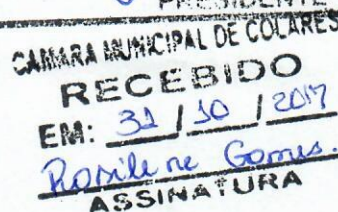 PRESIDENTE
CAMARA MUNICIPAL DE COLARES
RECEBIDO
EM: 31 / 10 / 2017
Rosilene Gomes.
ASSINATURA